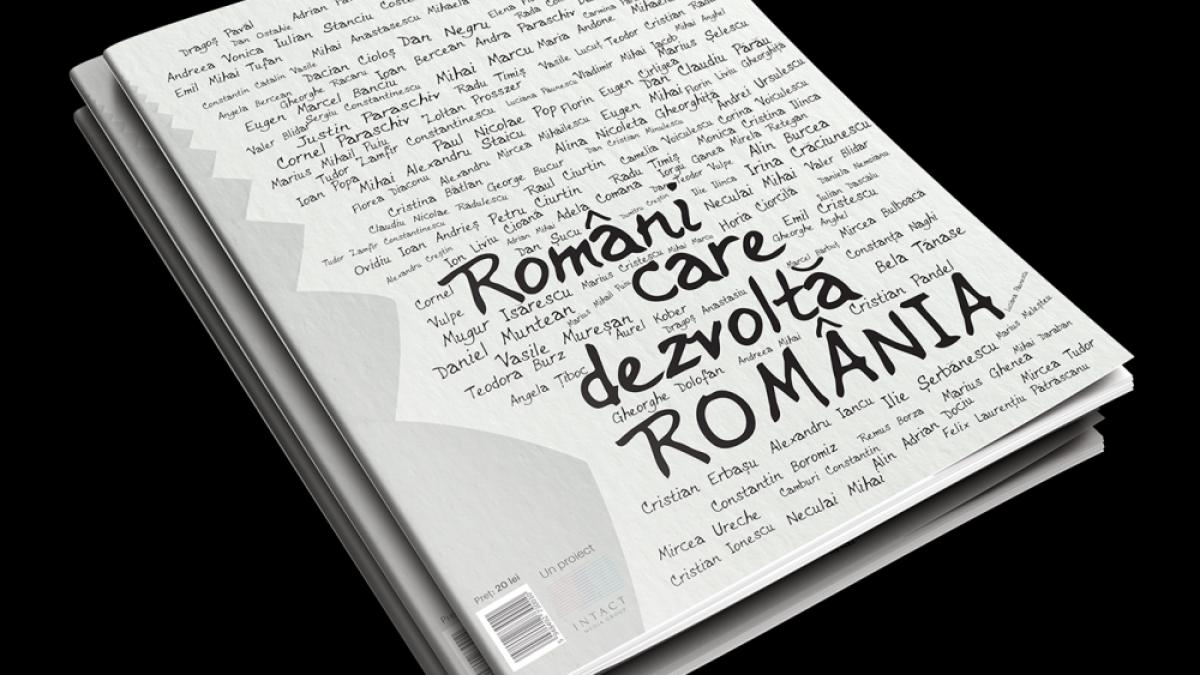 Dragoș Pavăl
Dan Ostahie
Adrian
Andreea Vonica Iulian Stanciu
Elena
Emil Mihai Tufan Mihai Anastasescu
Rada
Carmina
Constantin Catalin Vasile Dacian Cioloș Dan Negru
Andra Paraschiv Dan Mihaela
Angela Bercean Gheorghe Racaru Ioan Bercean
Maria Andone Mihaela
Cristian Radu
Eugen Marcel Banciu Mihai Marcu
Mihai Anghel
Valer Blidar Sergiu Constantinescu Radu Timiș Vasile Lucuț Teodor
Marius Șelescu
Justin Paraschiv Zoltan Prosszer Luciana Paunescu Vladimir Mihai Iacob
Cornel Paraschiv Constantinescu Pop Florin Eugen Cirligea Dan Claudiu Părău
Marius Mihail Puiu Paul Nicolae Eugen Mihai Florin Liviu Gheorghița
Tudor Zamfir
Ioan Popa Mihai Alexandru Staicu Alina Nicoleta Gheorghița Andrei Ursulescu
Florea Diaconu Alexandru Mircea Mihailescu Dan Cristian Minulescu Corina Voiculescu
Cristina Bâtlan George Bucur Camelia Voiculescu Monica Cristina Ilinca
Claudiu Nicolae Radulescu Raul Ciurtin Radu Timiș Ganea Mirela Retegan
Petru Ciurtin Comana Iorgu Teodor Vulpe Alin Burcea
Tudor Zamfir Constantinescu Ioan Andrieș Cioană Adela Ilie Ilinca Irina Crăciunescu
Ovidiu Ion Liviu Adrian Mihai Dumitru Creștin Neculai Mihai Valer Blidar
Alexandru Creștin Dan Șucu Daniela Nemoianu
Români
Cornel Vulpe Marius Cristescu Mihai Marcu Horia Ciorcilă Iulian Dascalu
care
Mugur Isarescu Marius Mihail Puiu Gheorghe Anghel Emil Cristescu
Daniel Muntean Mircea Bulboacă
Vasile Mureșan Dragoș Anastasiu Marcel Bărbuț Constanța Naghi
dezvoltă
Teodora Burz Aurel Kober Bela Tănase
Angela Țiboc Andreea Mihai Cristian Pandel
Gheorghe Dolofan
ROMÂNIA
Luciana Paunescu
Cristian Erbașu Alexandru Iancu Ilie Șerbănescu Marius Meleștea
Constantin Boromiz Remus Borza Marius Ghenea Mihai Daraban
Mircea Ureche Camburi Constantin Alin Adrian Dociu Mircea Tudor
Cristian Ionescu Neculai Mihai Felix Laurențiu Pătrascanu
Preț: 20 lei
Un proiect
INTACT
MEDIA GROUP